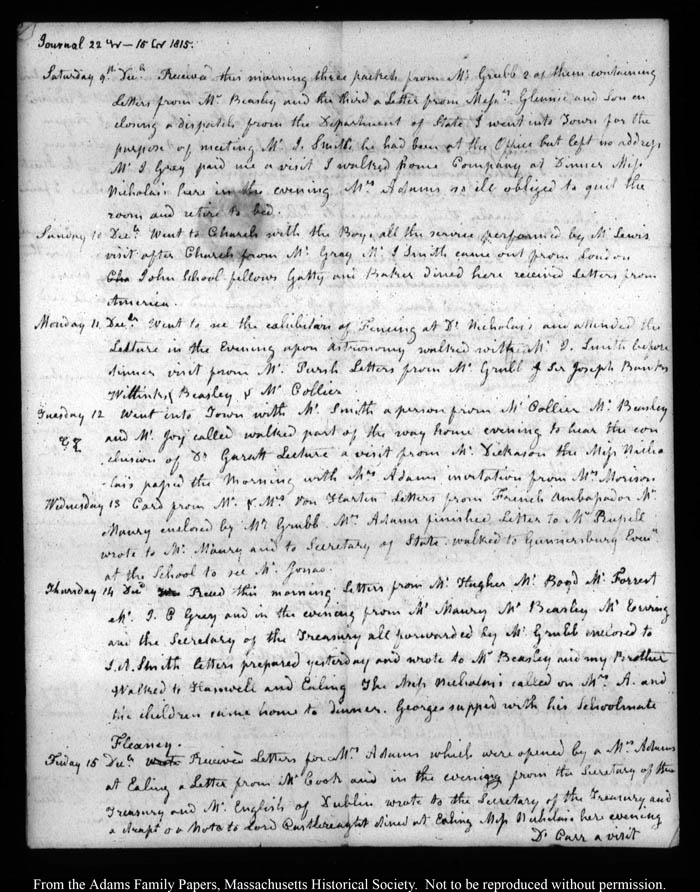 Journal 22 — 15 1815.
Saturday 9th Decr. Received this morning three packets from Mr Grubb 2 of them containing
Letters from Mr Beasley and the third a Letter from Messrs. Glennie and Son en
closing a dispatch from the Department of State I went into Town for the
purpose of meeting Mr. J. Smith, he had been at the Office but left no address
Mr J Grey paid me a visit I walked home Company at Dinner Miss
Nicholas's here in the evening Mrs Adams so ill obliged to quit the
room and retire to bed.
Sunday 10 Decr. Went to Church with the Boys, all the service performed by Mr Lewis
visit after Church from Mr. Gray Mr J Smith came out from London
Cha John School-fellows Gatty and Baker dined here received Letters from
America.
Monday 11 Decr. Went to see the exhibition of Fencing at Dr Nicholas's and attended the
Lecture in the Evening upon Astronomy walked with Mr J. Smith before
dinner visit from Mr. Parish Letters from Mr Grubb & Sir Joseph Banks
Willinks, Beasley & Mr Collier
Tuesday 12 Went into Town with Mr. Smith a person from Mr Collier Mr. Beasley
and Mr. Joy called walked part of the way home evening to hear the con
clusion of Dr Garatt Lecture a visit from Mr. Dickason the Miss Nicho
-las's passed the Morning with Mrs Adams invitation from Mrs Morison
Wednesday 13 Card from Mr. & Mrs Von Harten Letters from French Ambassador Mr.
Maury enclosed by Mr Grubb Mrs Adams finished Letter to Mr Russell
wrote to Mr. Maury and to Secretary of State walked to Gunnersbury Eveng.
at the School to see Mr. Jonas.
Thursday 14 Decr Recd this morning Letters from Mr Hughes Mr. Boyd Mr Forrest
Mr. J. C Grey and in the evening from Mr Maury Mr Beasley Mr Erving
and the Secretary of the Treasury all forwarded by Mr Grubb enclosed to
J.A. Smith letters prepared yesterday and wrote to Mr Beasley and my Brother
Walked to Hanwell and Ealing The Miss Nicholas's called on Mrs. A. and
the children came home to dinner. George supped with his Schoolmate
Fleaney.
Friday 15 Decr wrote Received Letters for Mrs Adams which were opened by a Mrs Adams
at Ealing a Letter from Mr Cook and in the evening from the Secretary of the
Treasury and Mr English of Dublin wrote to the Secretary of the Treasury and
a drapt o a Note to Lord Castlereaght dined at Ealing Miss Nicholas's here evening
Dr Carr a visit
From the Adams Family Papers, Massachusetts Historical Society. Not to be reproduced without permission.